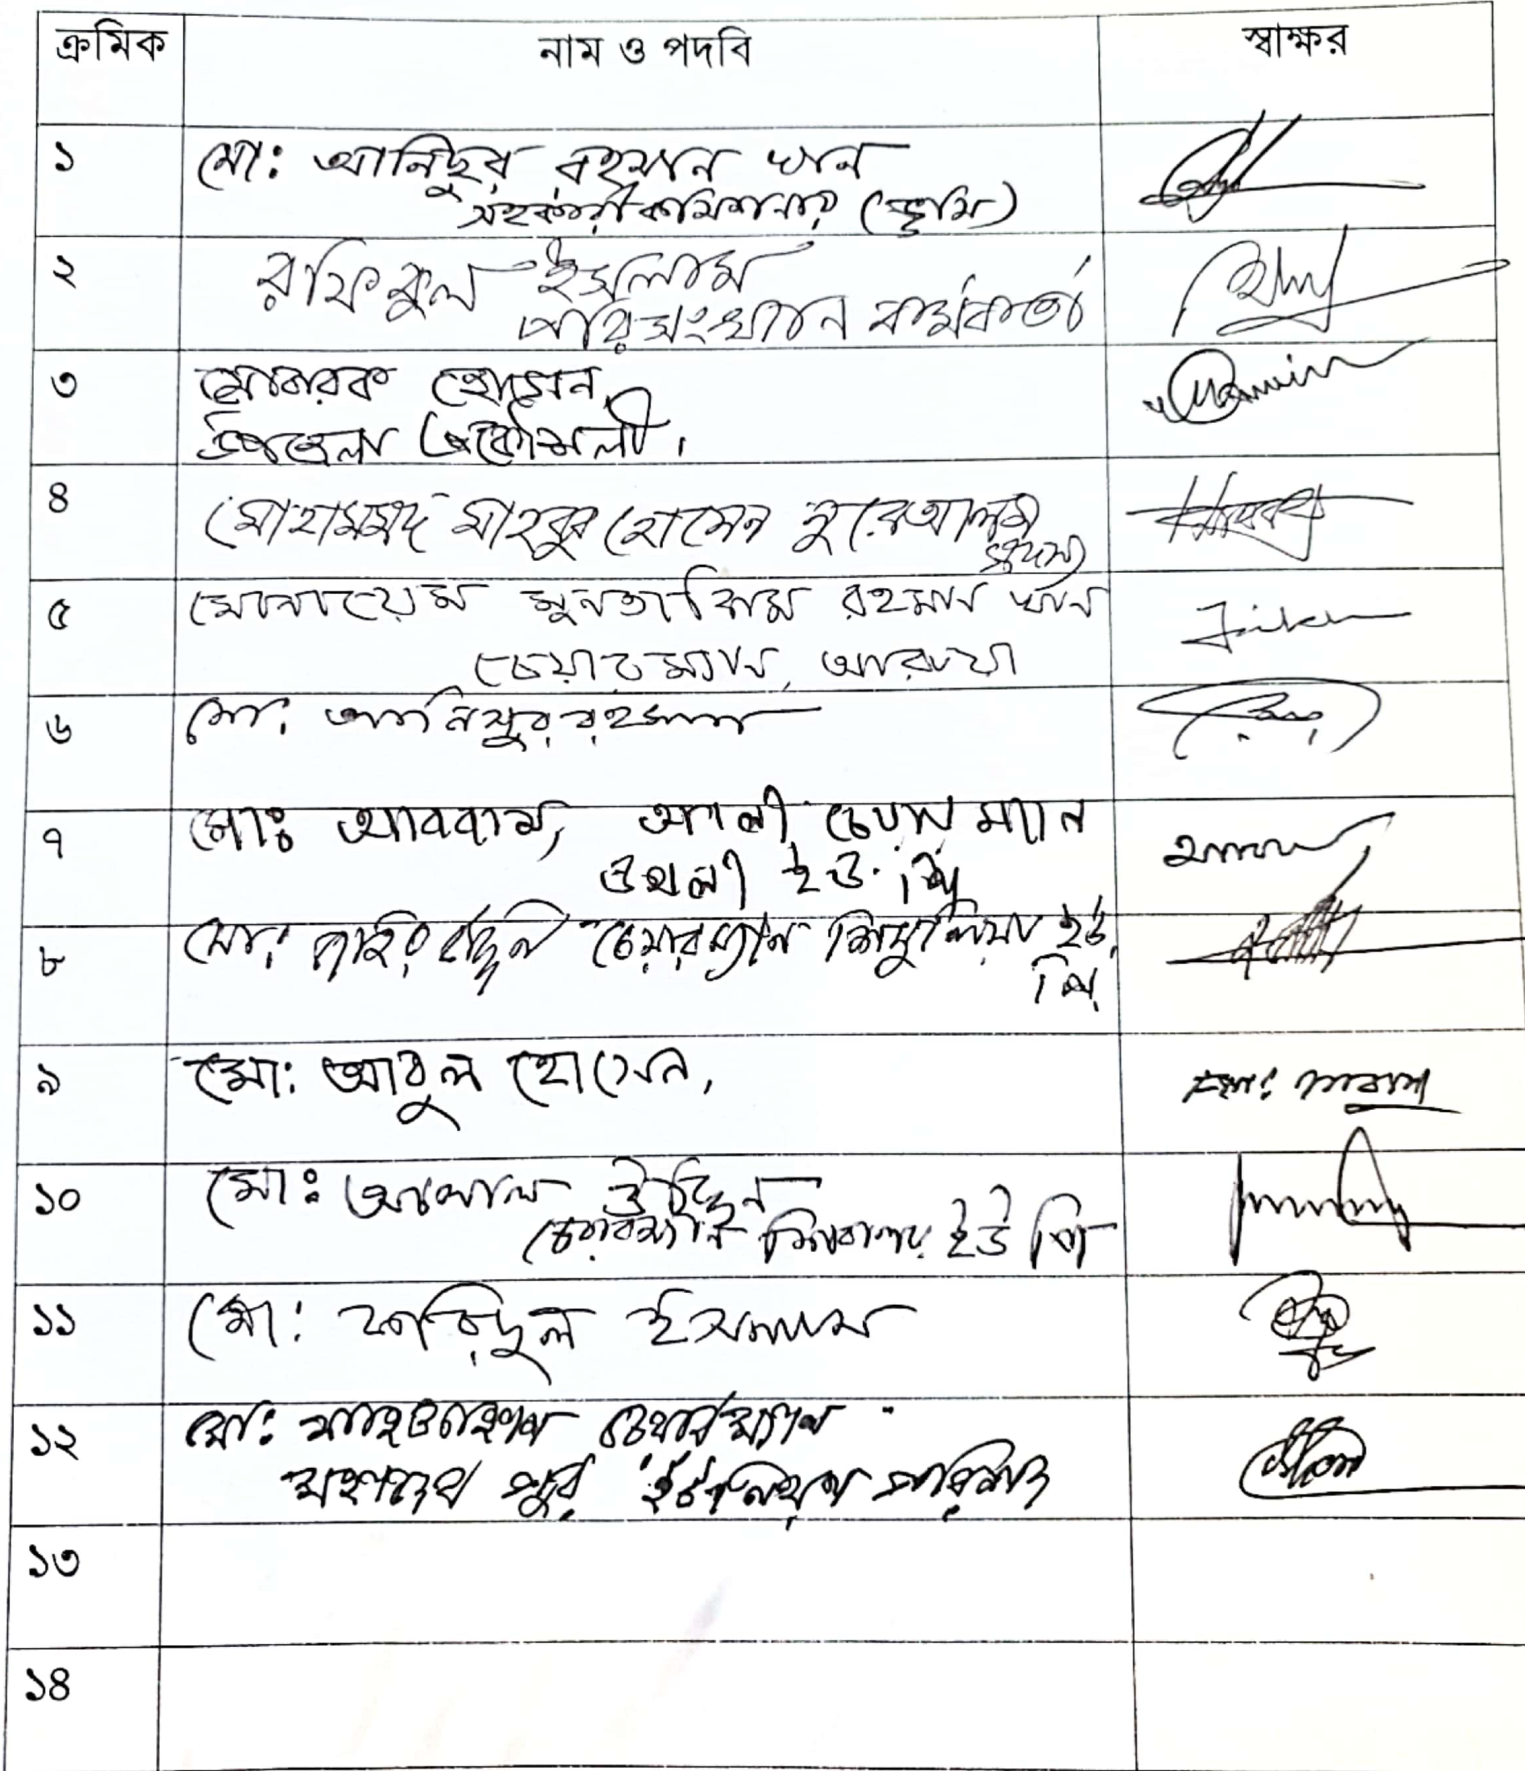 ক্রমিক নাম ও পদবি স্বাক্ষর
১ মো: আনিছুর রহমান খান
সহকারী কমিশনার (ভূমি)
২ রফিকুল ইসলাম
পরিসংখ্যান কর্মকর্তা
৩ মোবারক হোসেন,
উপজেলা প্রকৌশলী।
৪ মোহামমদ মাহবুব হোসেন নুরেআলম
৫ মোনায়েম মুনতাকিম রহমান খান
চেয়ারম্যান, আরুয়া
৬ মো: আনিসুর রহমান
৭ মোঃ আববাস, আলী চেয়ারম্যান
উথলী ইউ. পি
৮ মো: চেয়ারম্যান শিমুলিয়া ইউ.
পি.
৯ মো: আবুল হোসেন,
১০ মো: আলাল উদ্দিন
চেয়ারম্যান শিবালয় ইউ পি
১১ মো: ফরিদুল ইসলাম
১২ মো: চেয়ারম্যান
পুর ইউনিয়ন পরিষদ
১৩
১৪